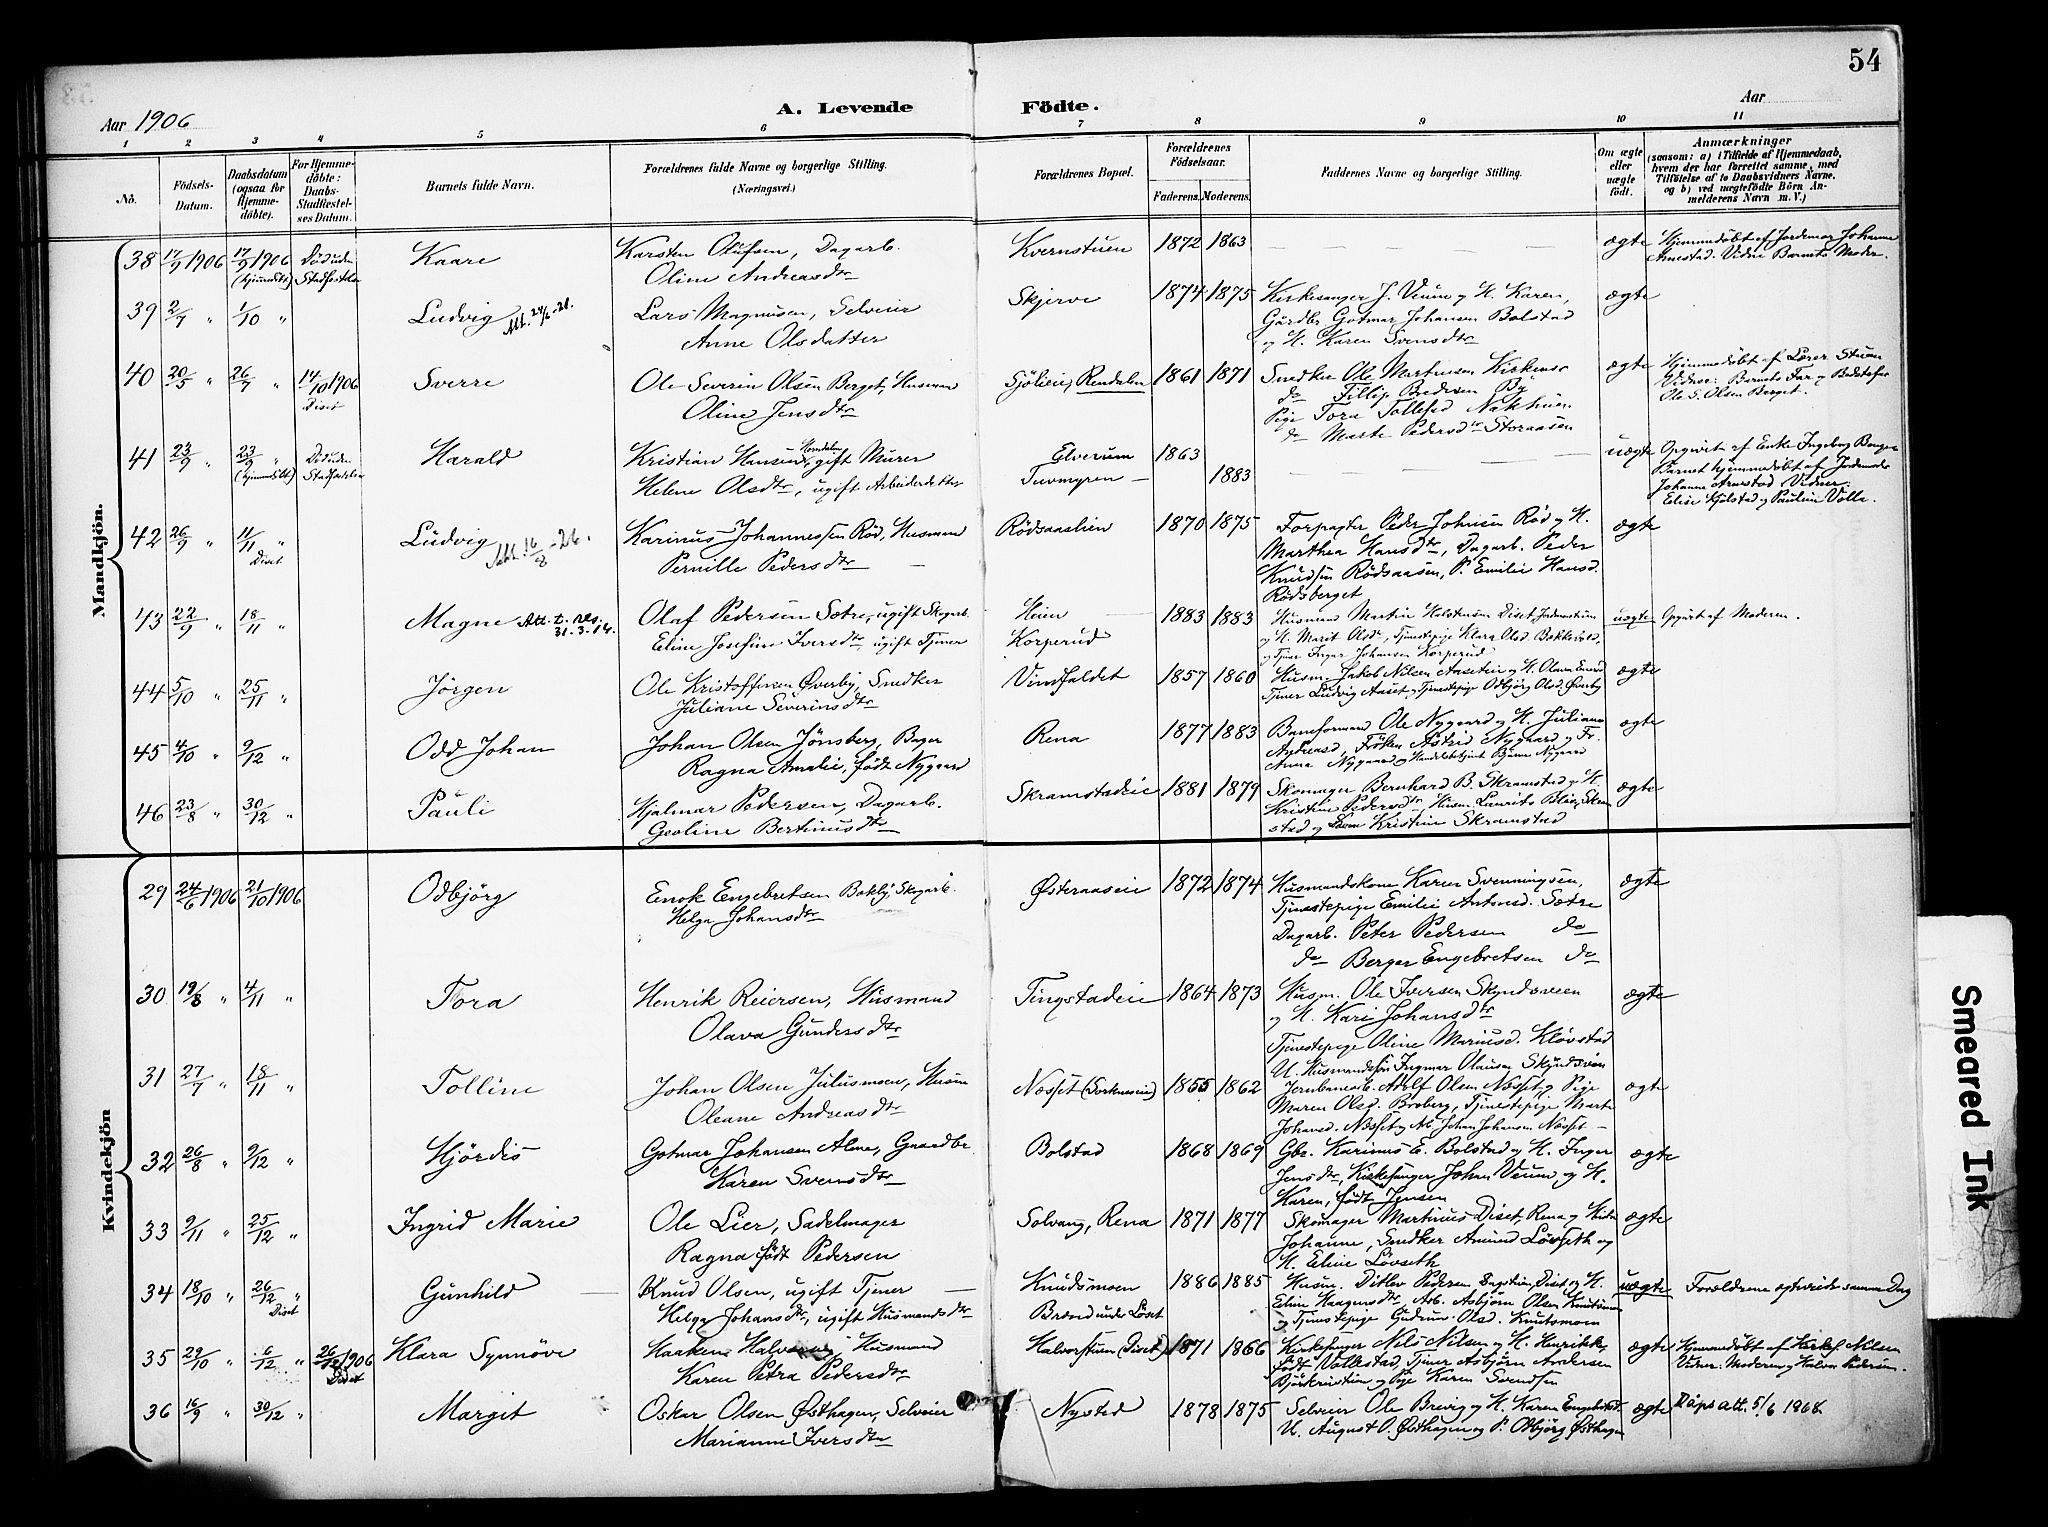 54
Aar 1906
A. Levende Födte.
Aar
1 2 3 4 5 6 7 8 9 10 11
No.
Födsels-Datum.
Daabsdatum (ogsaa for Hjemmedöbte).
For Hjemmedöbte: Daabs-Stadfæstelses Datum.
Barnets fulde Navn.
Forældrenes fulde Navne og borgerlige Stilling. (Næringsvei.)
Forældrenes Bopæl.
Forældrenes Födselsaar.
Faderens. Moderens.
Faddernes Navne og borgerlige Stilling.
Om ægte eller uægte födt.
Anmærkninger (saasom: a) i Tilfælde af Hjemmedaab, hvem der har forrettet samme, med Tilföielse af to Daabsvidners Navne, og b) ved uægtefödte Börn Anmelderens Navn m. V.)
Mandkjön.
38 17/9 1906 17/9 1906 (hjemmedöbt) Död uden Stadfæstelse Kaare Karsten Olufsen, Dagarb. Kvernstuen 1872 1863 ægte Hjemmedöbt af Jordemor Johanne
Oline Andreasdtr Arnestad. Vidne Barnets Moder.
39 2/7 " 1/10 " Ludvig Att. 24/6-21. Lars Magnusen, Selveier Skjerve 1874 1875 Kirkesanger J. Veum og H. Karen, ægte
Anne Olsdatter Gårdbr Gotmar Johansen Bolstad
og H. Karen Svensdtr
40 20/5 " 26/7 " 14/10 1906 Diset Sverre Ole Severin Olsen Berget, Husmand Sjölien, Rendalen 1861 1871 Snedker Ole Martinsen Kirkener ægte Hjemmedöbt af Lærer Stuen
Oline Jensdtr do Fillip Bredesen By Vidner: Barnets Far og Bedstefar
Pige Tora Tollefsd Nakhuen Ole S. Olsen Berget.
do Marte Pedersdtr Storaasen
41 23/9 " 23/9 " (hjemmedöbt) Död uden Stadfæstelse Harald Kristian Hansen, gift Murer Elverum 1863 uægte Opgivet af Enke Ingeborg
Helene Olsdtr, ugift Arbeiderske Tuvmyren 1883 Barnet hjemmedöbt af Jordemoder
Johanne Arnestad Vidner:
Elise Hjelstad og Pauline Volla.
42 26/9 " 11/11 " Diset Ludvig Att. 16/8-26. Karinus Johannessen Röd, Husmand Rödsaaslien 1870 1875 Forpagter Peder Johnsen Röd og H. ægte
Pernille Pedersdtr Marthea Hansdtr, Dagarb. Peder
Knudsen Rödsaasen, P. Emilie Hansd.
Rödsberget
43 22/9 " 18/11 " Magne Att. t. 31.3.14. Olaf Pedersen Sætre, ugift Skogarb. Heien 1883 1883 Husmand Martin Halstensen Diset, uægte Opgivet af Moderen.
Eline Josefine Iversdtr ugift Tjener Korperud og H. Marit Olsdtr, Tjenestepige Klara Olsd. Bakkevold,
og Tjener Ingvar Johansen Korperud
44 5/10 " 25/11 " Jörgen Ole Kristoffersen Øverby, Snedker Vindfaldet 1857 1860 Husm. Jakob Nilsen Aaseteie og H. Olava ægte
Juliane Severinsdtr Tjener Ludvig Aaset og Tjenestepige Odbjörg Olsd. Øverby
45 4/10 " 9/12 " Odd Johan Johan Olsen Jönsberg, Bager Rena 1877 1883 Baneformand Ole Nygaard og H. Juliane ægte
Ragna Amalie, födt Nygaard Andreasd, Fröken Astrid Nygaard og Fr.
Anna Nygaard og Handelsbetjent Bjarne Nygaard
46 23/8 " 30/12 " Pauli Hjalmar Pedersen, Dagarb. Skramstadeie 1881 1879 Skomager Bernhard B. Skramstad og H. ægte
Geoline Bertinusdtr Kristine Pedersdtr Husm. Laurits
stad og Kristine Skramstad
Kvindekjön
29 24/6 1906 21/10 1906 Odbjörg Enok Engebretsen Bakly, Skogarb. Østeraaseie 1872 1874 Husmandskone Karen Svenningsen, ægte
Helga Johansdtr Tjenestepige Emilie Antonsd. Sætre
Dagarb. Peter Pedersen do
do Berger Engebretsen do
30 19/8 " 4/11 " Tora Henrik Reiersen, Husmand Tingstadeie 1864 1873 Husm. Ole Iversen Skyndsveen ægte
Olava Gundersdtr og H. Kari Johansdtr
Tjenestepige Oline Mariusd. Klövstad
U. Husmandssön Ingmar Olausen Skyndsveen
31 27/7 " 18/11 " Tolline Johan Olsen Juliussen, Husm Næsset (Sorknæseie) 1855 1862 Jernbanearb. Adolf Olsen Næsset og Pige ægte
Oleane Andreasdtr Maren Olsd. Broberg, Tjenestepige Marte
Johansd. Næsset og Arb. Johan Johansen Næsset
32 26/8 " 9/12 " Hjördis Gotmar Johansen Alme, Gaardbr. Bolstad 1868 1869 Gbr. Karinus E. Bolstad og H. Inger ægte
Karen Svensdtr Jensdtr, Kirkesanger Johan Veum og H.
Karen, födt Jensen
33 9/11 " 25/12 " Ingrid Marie Ole Lier, Sadelmager Solvang, Rena 1871 1877 Skomager Martinus Diset, Rena og Hustru ægte
Ragna födt Pedersen Johanne, Snedker Amund Lövseth og
H. Eline Lövseth
34 18/10 " 26/12 " Diset Gunhild Knud Olsen, ugift Tjener Knudsmoen 1886 1885 Husm. Ditlev Pedersen Engstuen, Diset og H. uægte Forældrene ægteviede samme Dag
Helga Johansdtr, ugift Husmandsdtr Brænd under Löset Eline Haagensdtr, Arb. Asbjörn Olsen Knutsmoen
og Tjenestepige Gudrun Olsd. Knutsmoen
35 29/10 " 6/12 " 26/12 1906 Diset Klara Synnöve Haaken Halvorsen, Husmand Halvorstuen (Diset) 1871 1866 Kirkesanger Nils Nilsen og H. Henrikke, ægte Hjemmedöbt af Kirkes. Nilsen
Karen Petra Pedersdtr födt Volkstad, Tjener Asbjörn Andersen Vidner: Moderen og Halvor Pedersen.
Björkeristuen og Pige Karen Svendsen
36 16/9 " 30/12 " Margit Oskar Olsen Østhagen, Selveier Nysted 1878 1875 Selveier Ole Brevig og H. Karen Engebretsd. ægte Dåpsatt. 5/6 1968.
Marianne Iversdtr U. August O. Østhagen og P. Odbjörg Østhagen
Smeared Ink